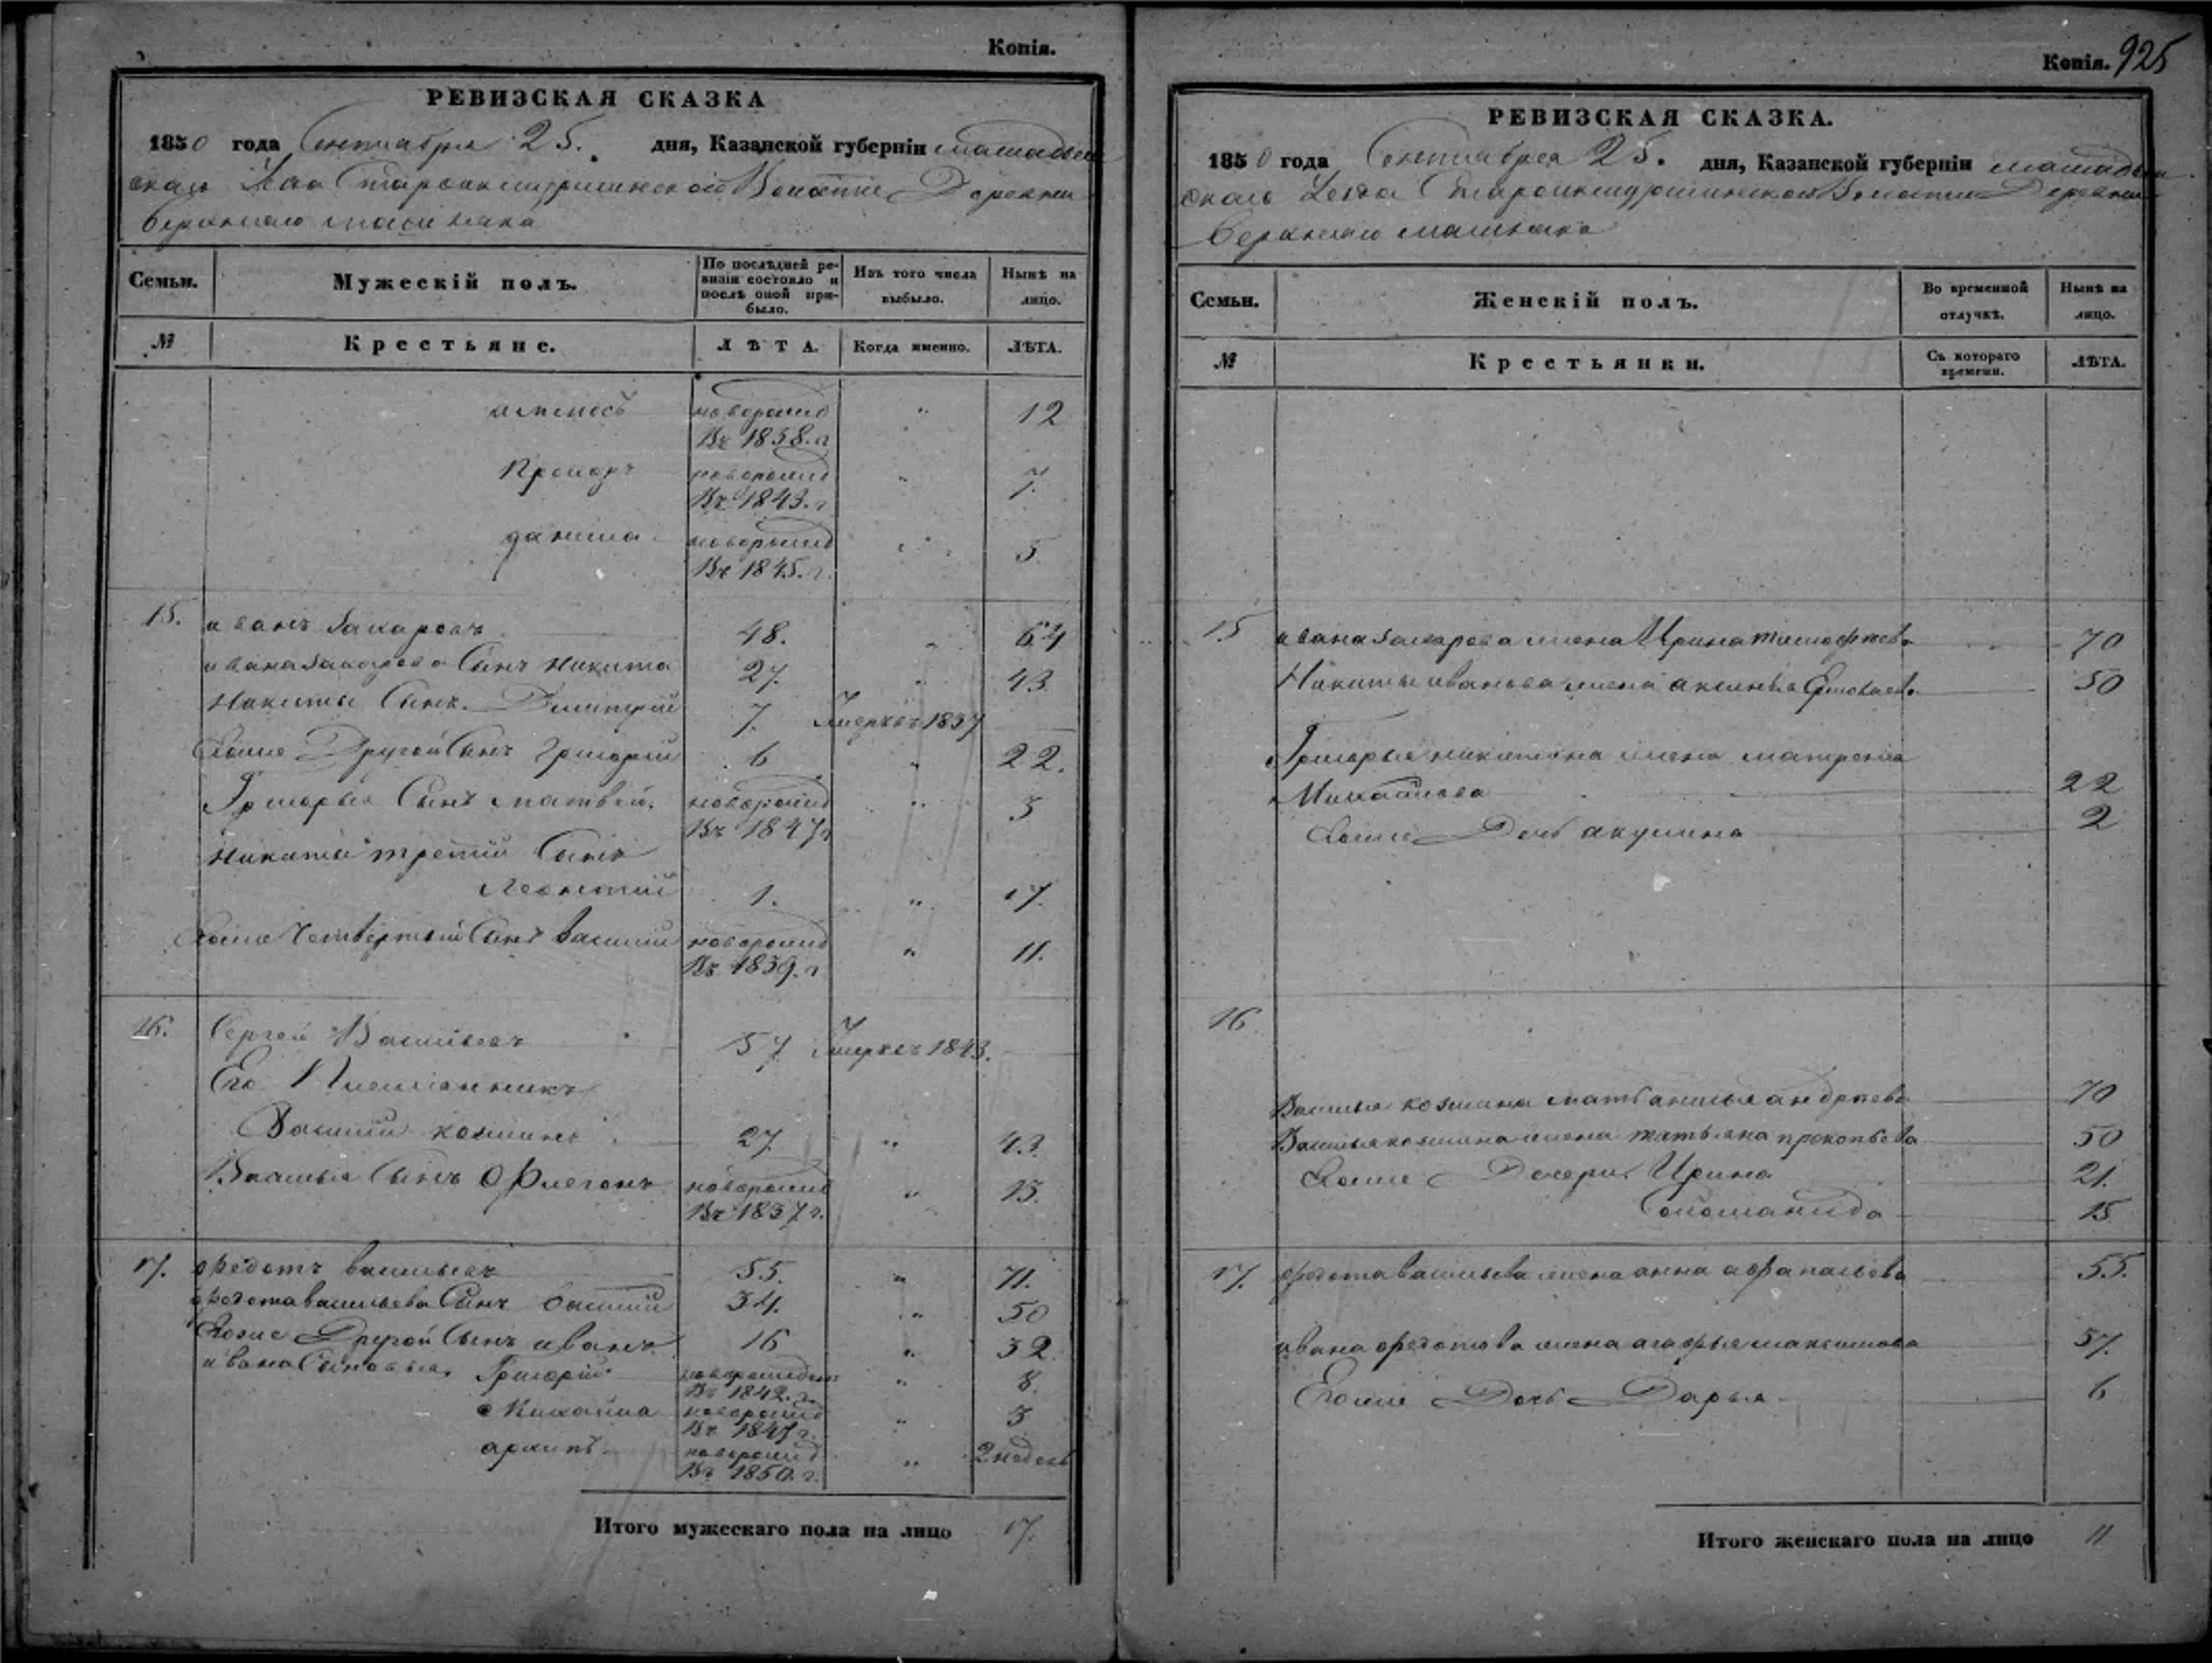 Копія.
РЕВИЗСКАЯ СКАЗКА
1850 года Сентября 25. дня, Казанской губерніи мамадыш
скаго Волости Деревни
верхняго
Семьи. Мужескій полъ. По послѣдней ре-визіи состояло и послѣ оной при-было. Изъ того числа выбыло. Нынѣ на лицо.
№ Крестьяне. ЛѢТА. Когда именно. ЛѢТА.
новорожд " 12
Въ 1838. г
Прохоръ новорожд " 7.
Въ 1843. г
данила новорожд " 5.
Въ 1845. г.
15. иванъ Захаровъ 48. " 64
ивана Захарова Сынъ Никита 27. " 43.
Никиты Сынъ. Дмитрій 7. Умеръ въ 1837
Егоже Другой Сынъ Григорій 6 " 22.
Григорья Сынъ матвей. новорожд " 3
Въ 1847 г
Никиты третій Сынъ
Леонтій 1. " 17.
Егоже Четвертый Сынъ василий новорожд " 11.
Въ 1839. г
16. Сергей Васильевъ 57 Умеръ въ 1843.
Его Племянникъ
Василий козминъ 27. " 43.
Василья Сынъ Офлегонъ новорожд " 13.
Въ 1837 г.
17. федотъ васильевъ 55. " 71.
федота васильева Сынъ василий 34. " 50
Егоже Другой Сынъ иванъ 16 " 32
ивана Сыновья Григорій новорожден " 8.
Въ 1842. г.
Михайла новорожд " 3
Въ 1847 г.
архипъ новорожд " 2 недель
Въ 1850. г.
Итого мужескаго пола на лицо 17.
Копія. 925
РЕВИЗСКАЯ СКАЗКА.
1850 года Сентября 25. дня, Казанской губерніи мамадыш
скаго Уезда Волости Деревни
Верхняго
Семьи. Женскій полъ. Во временной отлучкѣ. Нынѣ на лицо.
№ Крестьянки. Съ котораго времени. ЛѢТА.
15 ивана Захарова жена Ирина тимофеева 70
Никиты иванова жена аксинья 50
Григорья никитина жена матрена
Михайлова 22
Егоже Дочь акулина 2
16
Василья козмина мать анисья андреева 70
Василья козмина жена татьяна прокопьева 50
Егоже Дочери Ирина 21.
Соломанида 15
17. федота васильева жена анна афанасьева 55.
ивана федотова жена агафья максимова 37.
Егоже Дочь Дарья 6
Итого женскаго пола на лицо 11